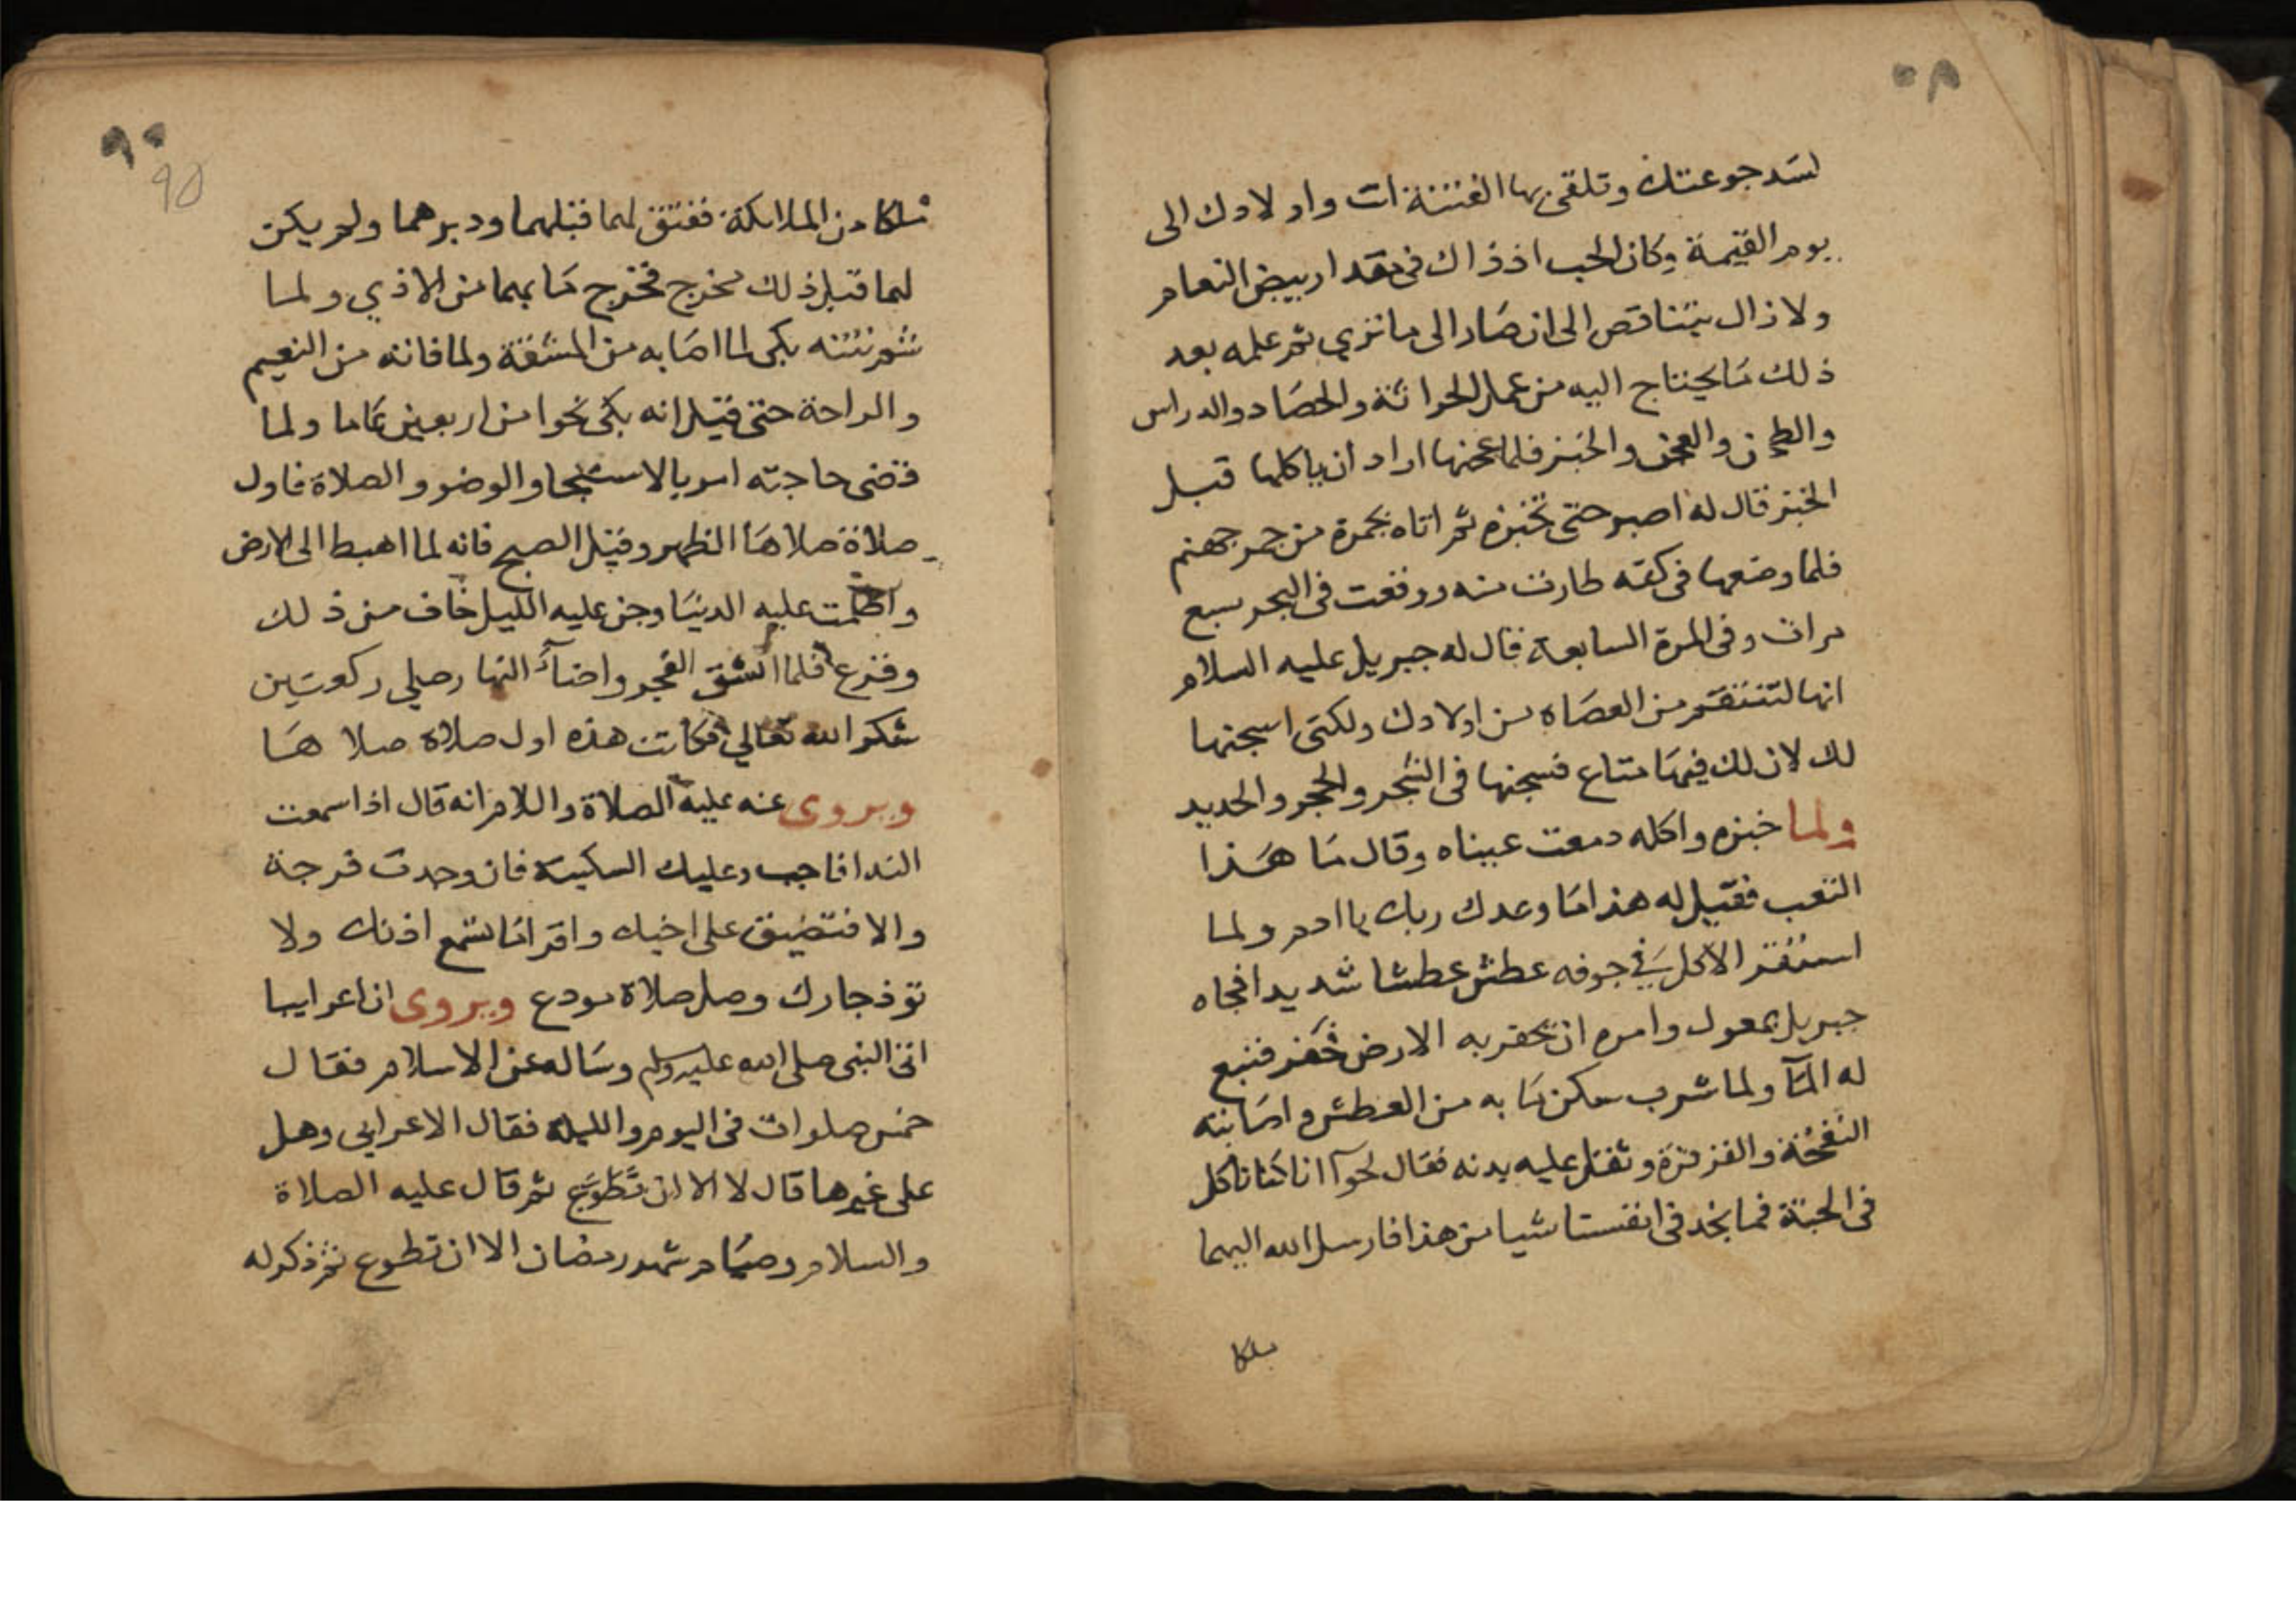 ٥٨
لسد جوعتك وتلقى بها الفتنة انت واولادك الى
يوم القيمة وكان الحب اذ ذاك فى مقدار بيض النعام
ولا زال يتناقص الى ان صار الى ما ترى ثم علمه بعد
ذلك ما يحتاج اليه من عمل الحراثة والحصاد والدراس
والطحن والعجن والخبز فلما عجنها اراد ان ياكلها قبل
الخبز قال له اصبر حتى تخبزه ثم اتاه بجمرة من جمر جهنم
فلما وضعها فى كفه طارت منه ووقعت فى البحر سبع
مرات وفى المرة السابعة قال له جبريل عليه السلام
انها لتنتقم من العصاه من اولادك ولكنى اسجنها
لك لان لك فيها متاع فسجنها فى الشجر والحجر والحديد
ولما خبزه واكله دمعت عيناه وقال ما هذا
التعب فقيل له هذا ما وعدك ربك يا ادم ولما
استقر الاكل في جوفه عطش عطشا شديدا فجاه
جبريل بمعول وامره ان يحفر به الارض فحفر فنبع
له المآ ولما شرب سكن ما به من العطش واصابته
النفخة والقرقرة وثقل عليه بدنه فقال لحوآ انا كنا ناكل
فى الجنة فما نجد فى انفسنا شيا من هذا فارسل الله اليهما
ملكا
٩٠
90
ملكا من الملائكة ففتق لهما قبلهما ودبرهما ولم يكن
لهما قبل ذلك مخرج فخرج ما بهما من الاذي ولما
شم نتنه بكى لما اصابه من المشقة ولما فاته من النعيم
والراحة حتى قيل انه بكى نحوا من اربعين عاما ولما
قضى حاجته امر بالاستنجا والوضو والصلاة فاول
صلاة صلاها الظهر وقيل الصبح فانه لما اهبط الى الارض
واظلمت عليه الدنيا وجن عليه الليل خاف من ذلك
وفزع فلما انشق الفجر واضآ النهار صلي ركعتين
شكر الله تعالي فكانت هذه اول صلاة صلاها
ويروى عنه عليه الصلاة والسلام انه قال اذا سمعت
الندا فاجب وعليك السكينة فان وجدت فرجة
والا فتضيق على اخيك واقرا ما تسمع اذنك ولا
توذ جارك وصل صلاة مودع ويروى ان اعرابيا
اتى النبى صلى الله عليه وسلم وساله عن الاسلام فقال
خمس صلوات فى اليوم والليلة فقال الاعرابى وهل
على غيرها قال لا الا ان تطوع ثم قال عليه الصلاة
والسلام وصيام شهر رمضان الا ان تطوع ثم ذكر له